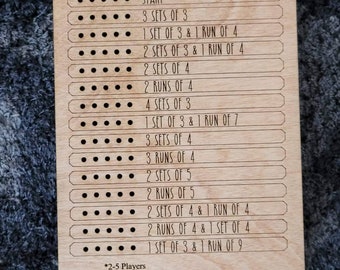 START
3 SETS OF 3
1 SET OF 3 & 1 RUN OF 4
2 SETS OF 3 & 1 RUN OF 4
2 SETS OF 4
2 RUNS OF 4
4 SETS OF 3
1 SET OF 3 & 1 RUN OF 7
3 SETS OF 4
3 RUNS OF 4
2 SETS OF 5
2 RUNS OF 5
2 SETS OF 4 & 1 RUN OF 4
2 RUNS OF 4 & 1 SET OF 4
1 SET OF 3 & 1 RUN OF 9
*2-5 Players